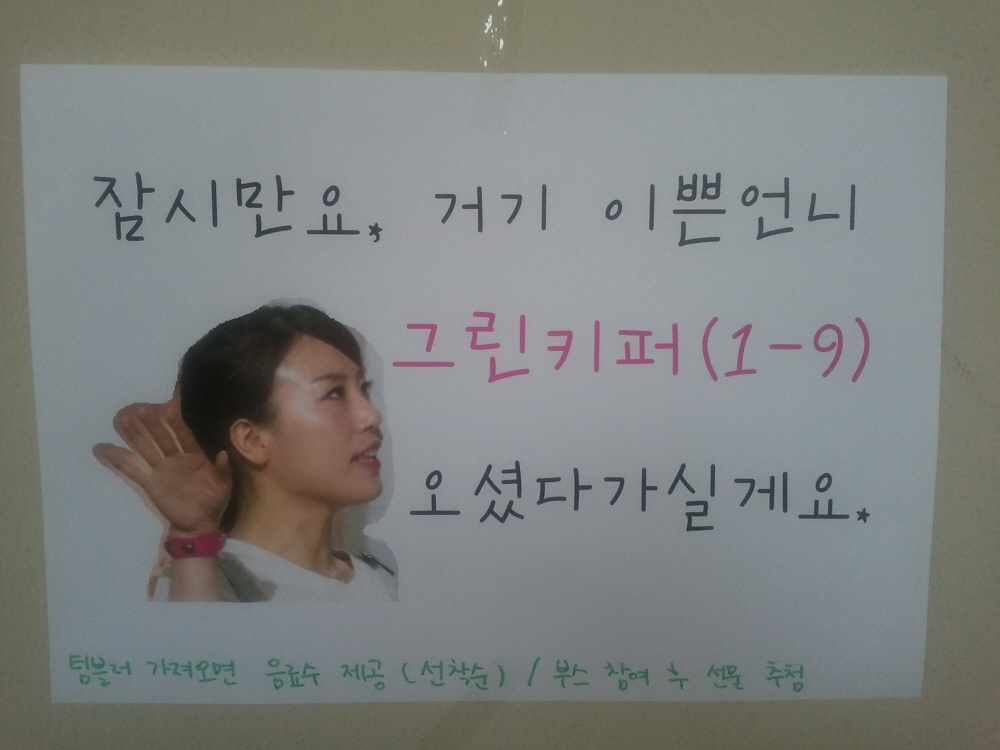 잠시만요. 거기 이쁜언니
그린키퍼(1-9)
오셨다가실게요.
텀블러 가져오면 음료수 제공 (선착순) / 부스 참여 후 선물 추첨